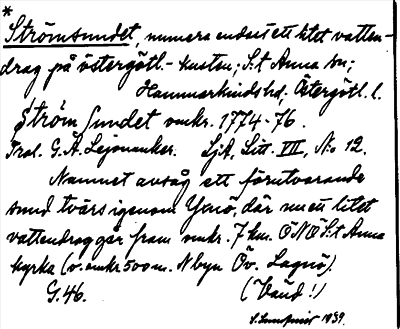 *
Strömsundet, numera endast ett litet vatten-
drag på östergötl.-kusten; S:t Anna sn;
Hammarkinds hd, Östergötl. l.
Ström Sundet omkr. 1774-76.
Trol. G. A. Lejonanker. LjA, Litt. VII, No 12.
Namnet avsåg ett förutvarande
sund tvärs igenom Yxnö, där nu ett litet
vattendrag går fram omkr. 7 km. ÖNÖ S:t Anna
kyrka (v. omkr 500 m. N byn Öv. Lagnö).
G. 46. (Vänd!)
1939.